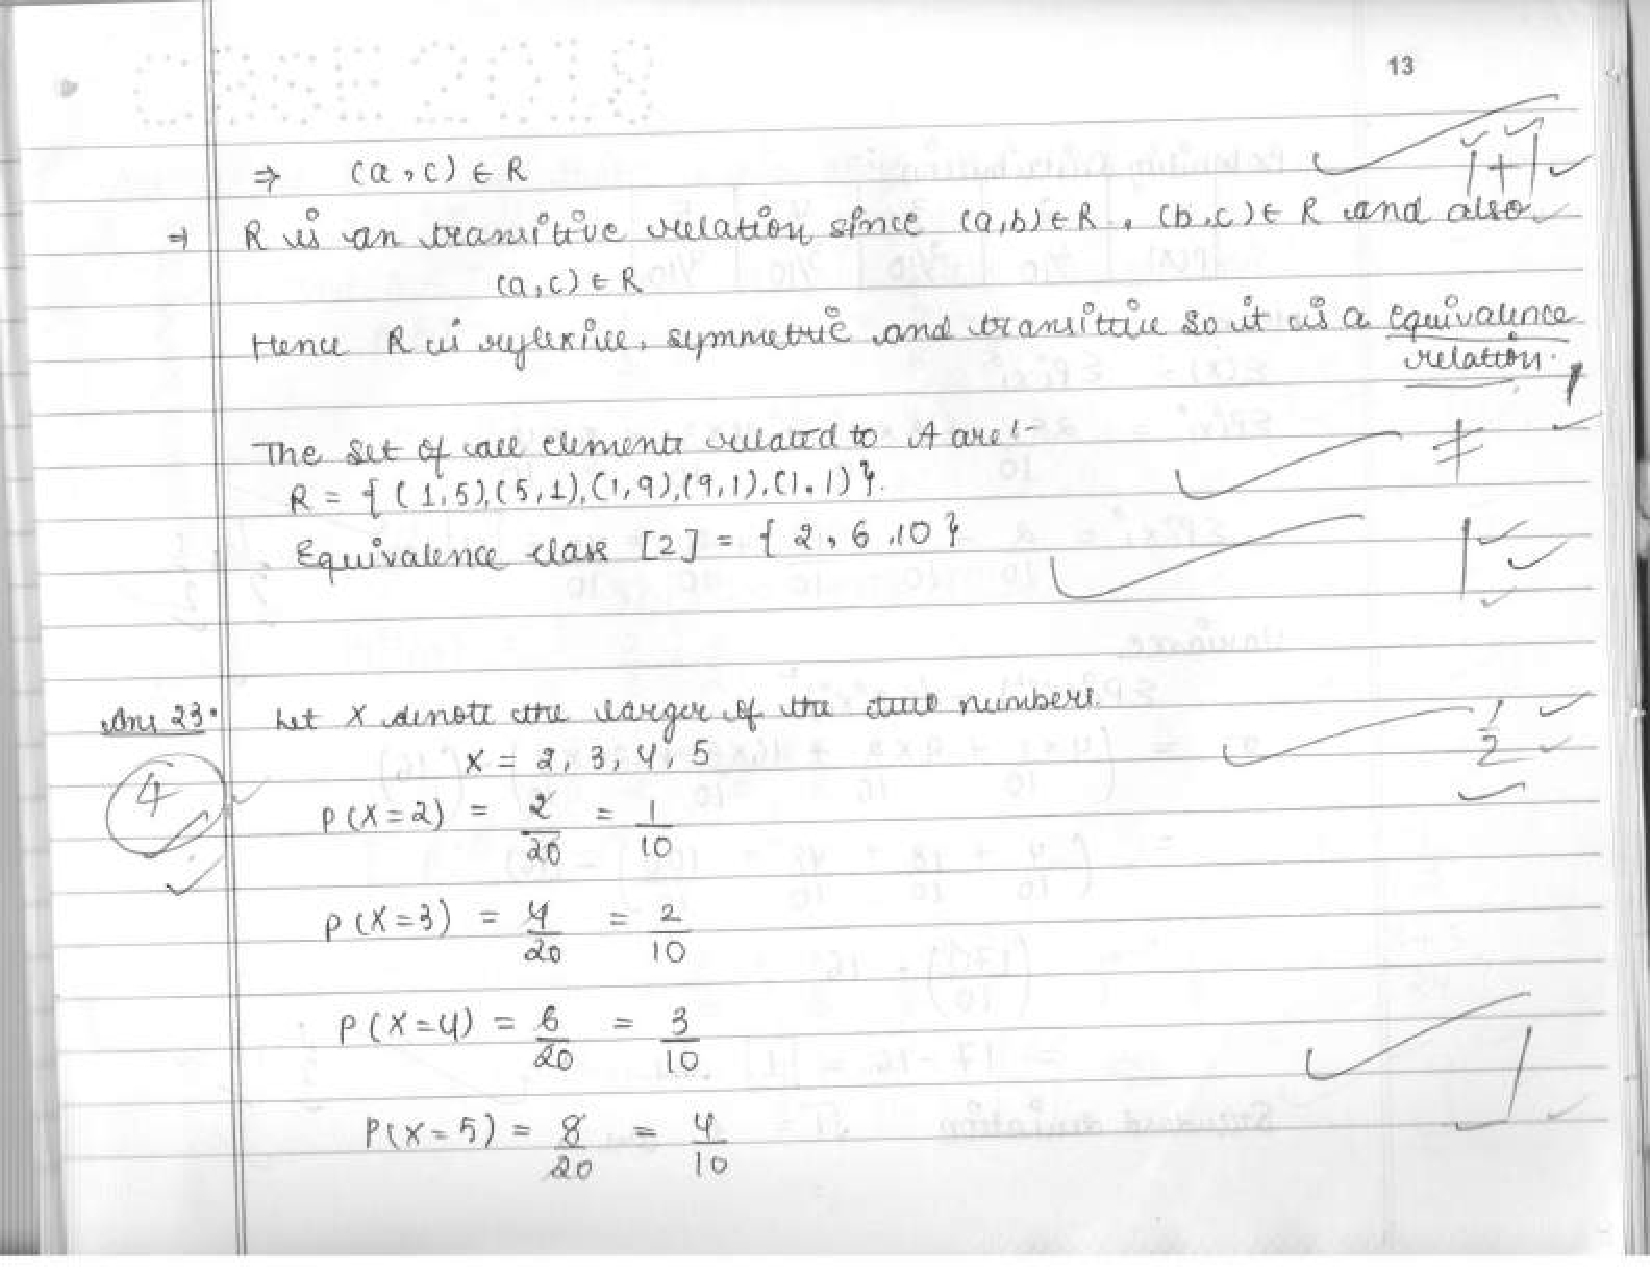 CBSE 2018
13
⇒ (a,c) ∈ R
1+1
⇒ R is an transitive relation since (a,b) ∈ R, (b,c) ∈ R and also
(a,c) ∈ R
Hence R is reflexive, symmetric and transitive so it is a equivalence
relation.
1
The set of all elements related to A are :-
R = { (1,5), (5,1), (1,9), (9,1), (1,1) }.
Equivalence class [2] = { 2, 6, 10 }
1
Ans 23. Let X denote the larger of the two numbers.
1/2
X = 2, 3, 4, 5
4
P(X=2) = 2/20 = 1/10
P(X=3) = 4/20 = 2/10
P(X=4) = 6/20 = 3/10
1
P(X=5) = 8/20 = 4/10